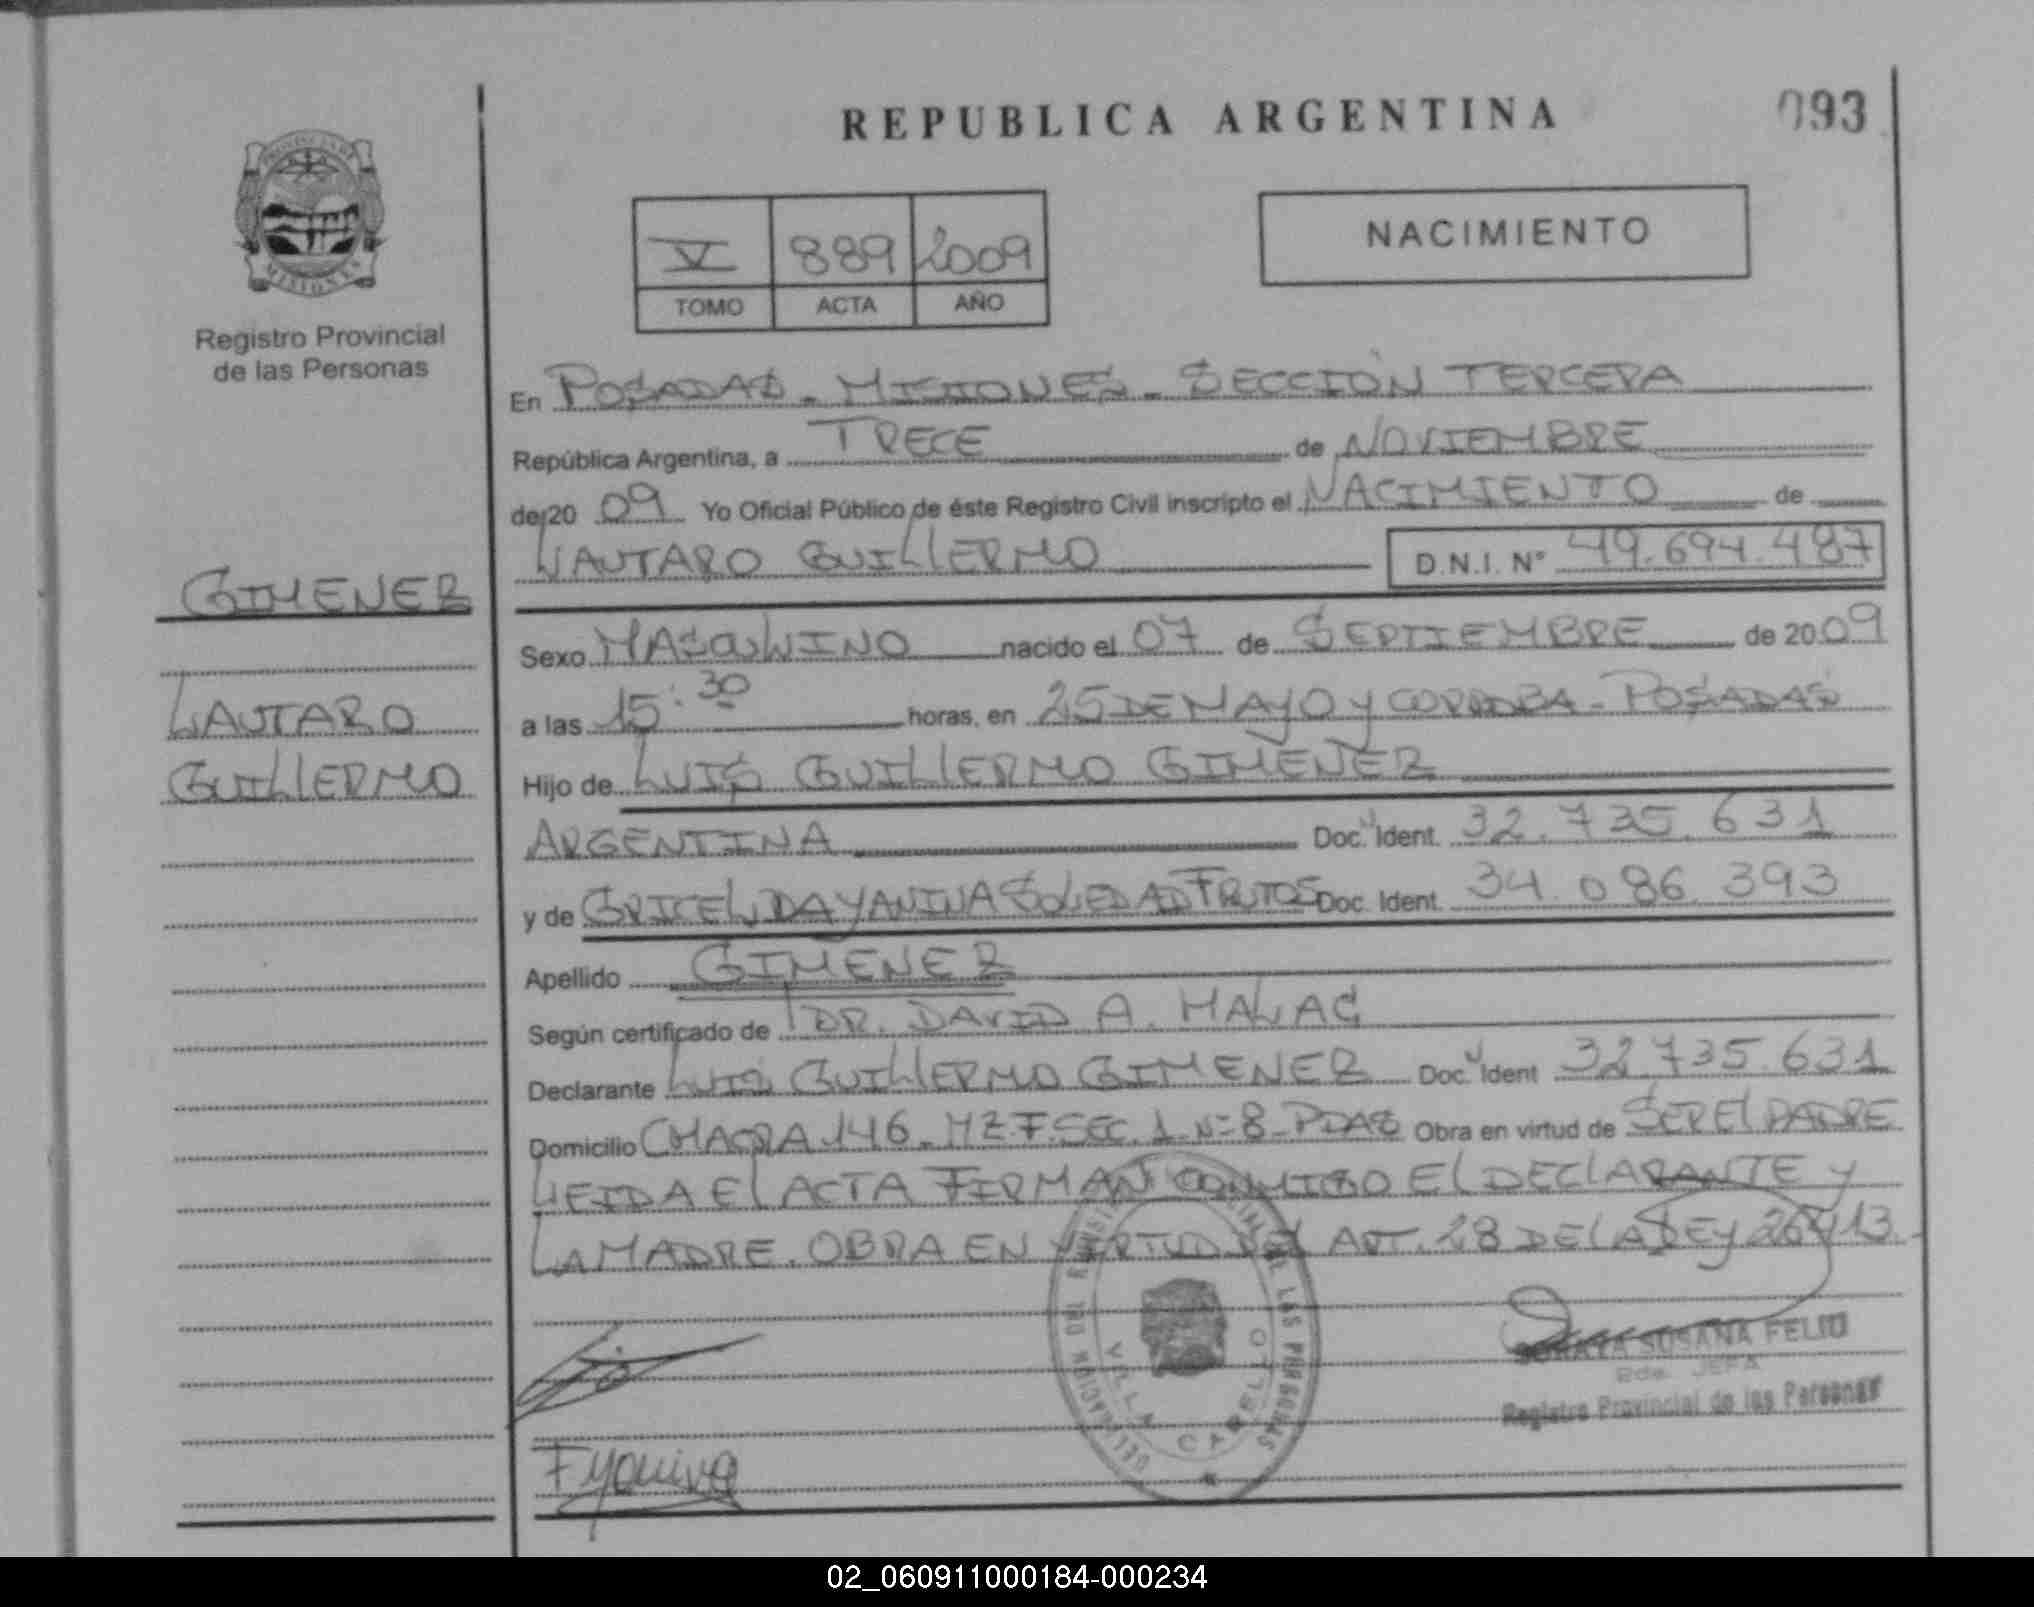 REPUBLICA ARGENTINA
093
PROVINCIA DE
MISIONES
Registro Provincial
de las Personas
V 889 2009
TOMO ACTA AÑO
NACIMIENTO
En POSADAS - MISIONES - SECCION TERCERA
República Argentina, a TRECE de NOVIEMBRE
de 20 09 Yo Oficial Público de éste Registro Civil inscripto el NACIMIENTO de
LAUTARO GUILLERMO D.N.I. N° 49.694.487
GIMENEZ
LAUTARO
GUILLERMO
Sexo MASCULINO nacido el 07 de SEPTIEMBRE de 2009
a las 15:30 horas, en 25 DE MAYO y CORDOBA - POSADAS
Hijo de LUIS GUILLERMO GIMENEZ
ARGENTINA Doc. Ident. 32.735.631
y de GRICELDA YANINA SOLEDAD FRUTOS Doc. Ident. 34.086.393
Apellido GIMENEZ
Según certificado de DR. DAVID A.
Declarante LUIS GUILLERMO GIMENEZ Doc. Ident 32.735.631
Domicilio CHACRA 146 - MZ.F. SEC. 1 N=8 - PDAS Obra en virtud de SER EL PADRE
LEIDA EL ACTA FIRMAN CONMIGO EL DECLARANTE y
LA MADRE. OBRA EN VIRTUD DEL ART. 28 DE LA LEY 26413.
SUSANA FELIU
JEFA
Registro Provincial de las Personas
DELEGACION DEL REGISTRO PROVINCIAL DE LAS PERSONAS
VILLA CABELLO
F yanina
02_060911000184-000234